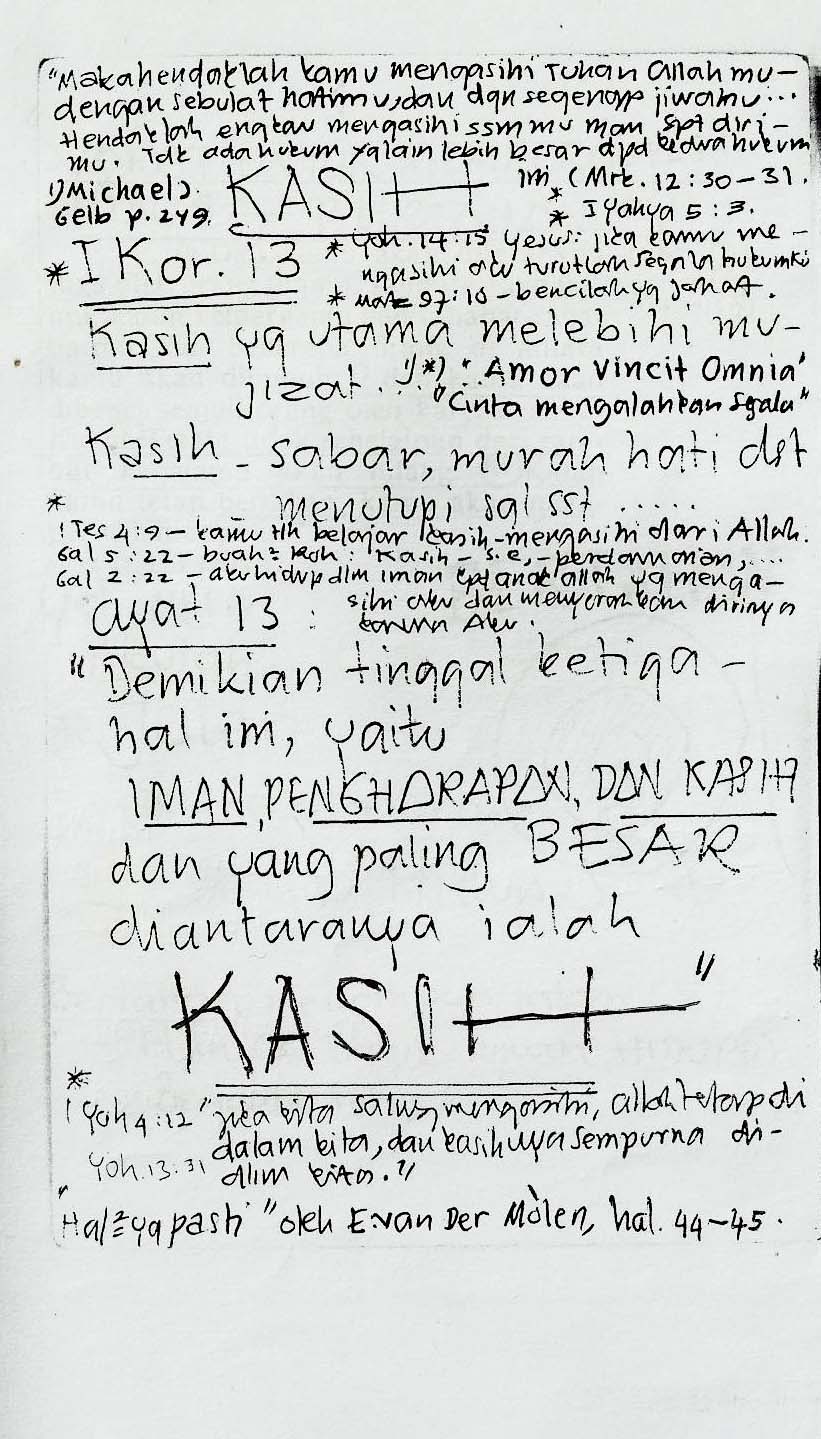 "Makahendaklah kamu mengasihi Tuhan Allah mu-
dengan sebulat hatimu, dan dgn segenap jiwamu...
Hendaklah engkau mengasihi ssm mu man spt diri-
mu. Tdk ada hukum yg lain lebih besar dpd kedua hukum
ini. (Mrk. 12:30-31.
1) Michael J.
Gelb p. 249.
KASIH
* I Yahya 5:3.
* I Kor. 13
* Yoh. 14:15, Yesus: jika kamu me-
ngasihi aku turutlah segala hukumku
* Mat 97:10 - bencilah yg jahat.
Kasih yg utama melebihi mu-
jizat. ... 1) *) "Amor Vincit Omnia"
"Cinta mengalahkan sgala"
Kasih - sabar, murah hati dst
- menutupi sgl sst .....
*
1 Tes 4:9 - kamu tlh belajar kasih-mengasihi dari Allah.
Gal 5:22 - buah² Roh: Kasih - s.c, - perdamaian, ....
Gal 2:22 - aku hidup dlm iman kpd anak allah yg menga-
sihi aku dan menyerahkan dirinya
karena Aku.
ayat 13 :
"Demikian tinggal ketiga-
hal ini, yaitu
IMAN, PENGHARAPAN, DAN KASIH
dan yang paling BESAR
diantaranya ialah
KASIH"
*
1 Yoh 4:12 "jika kita saling mengasihi, allah tetap di
dalam kita, dan kasihnya sempurna di-
Yoh. 13:31
dlm kita."
"Hal² yg pasti" oleh E. van Der Molen, hal. 44-45.